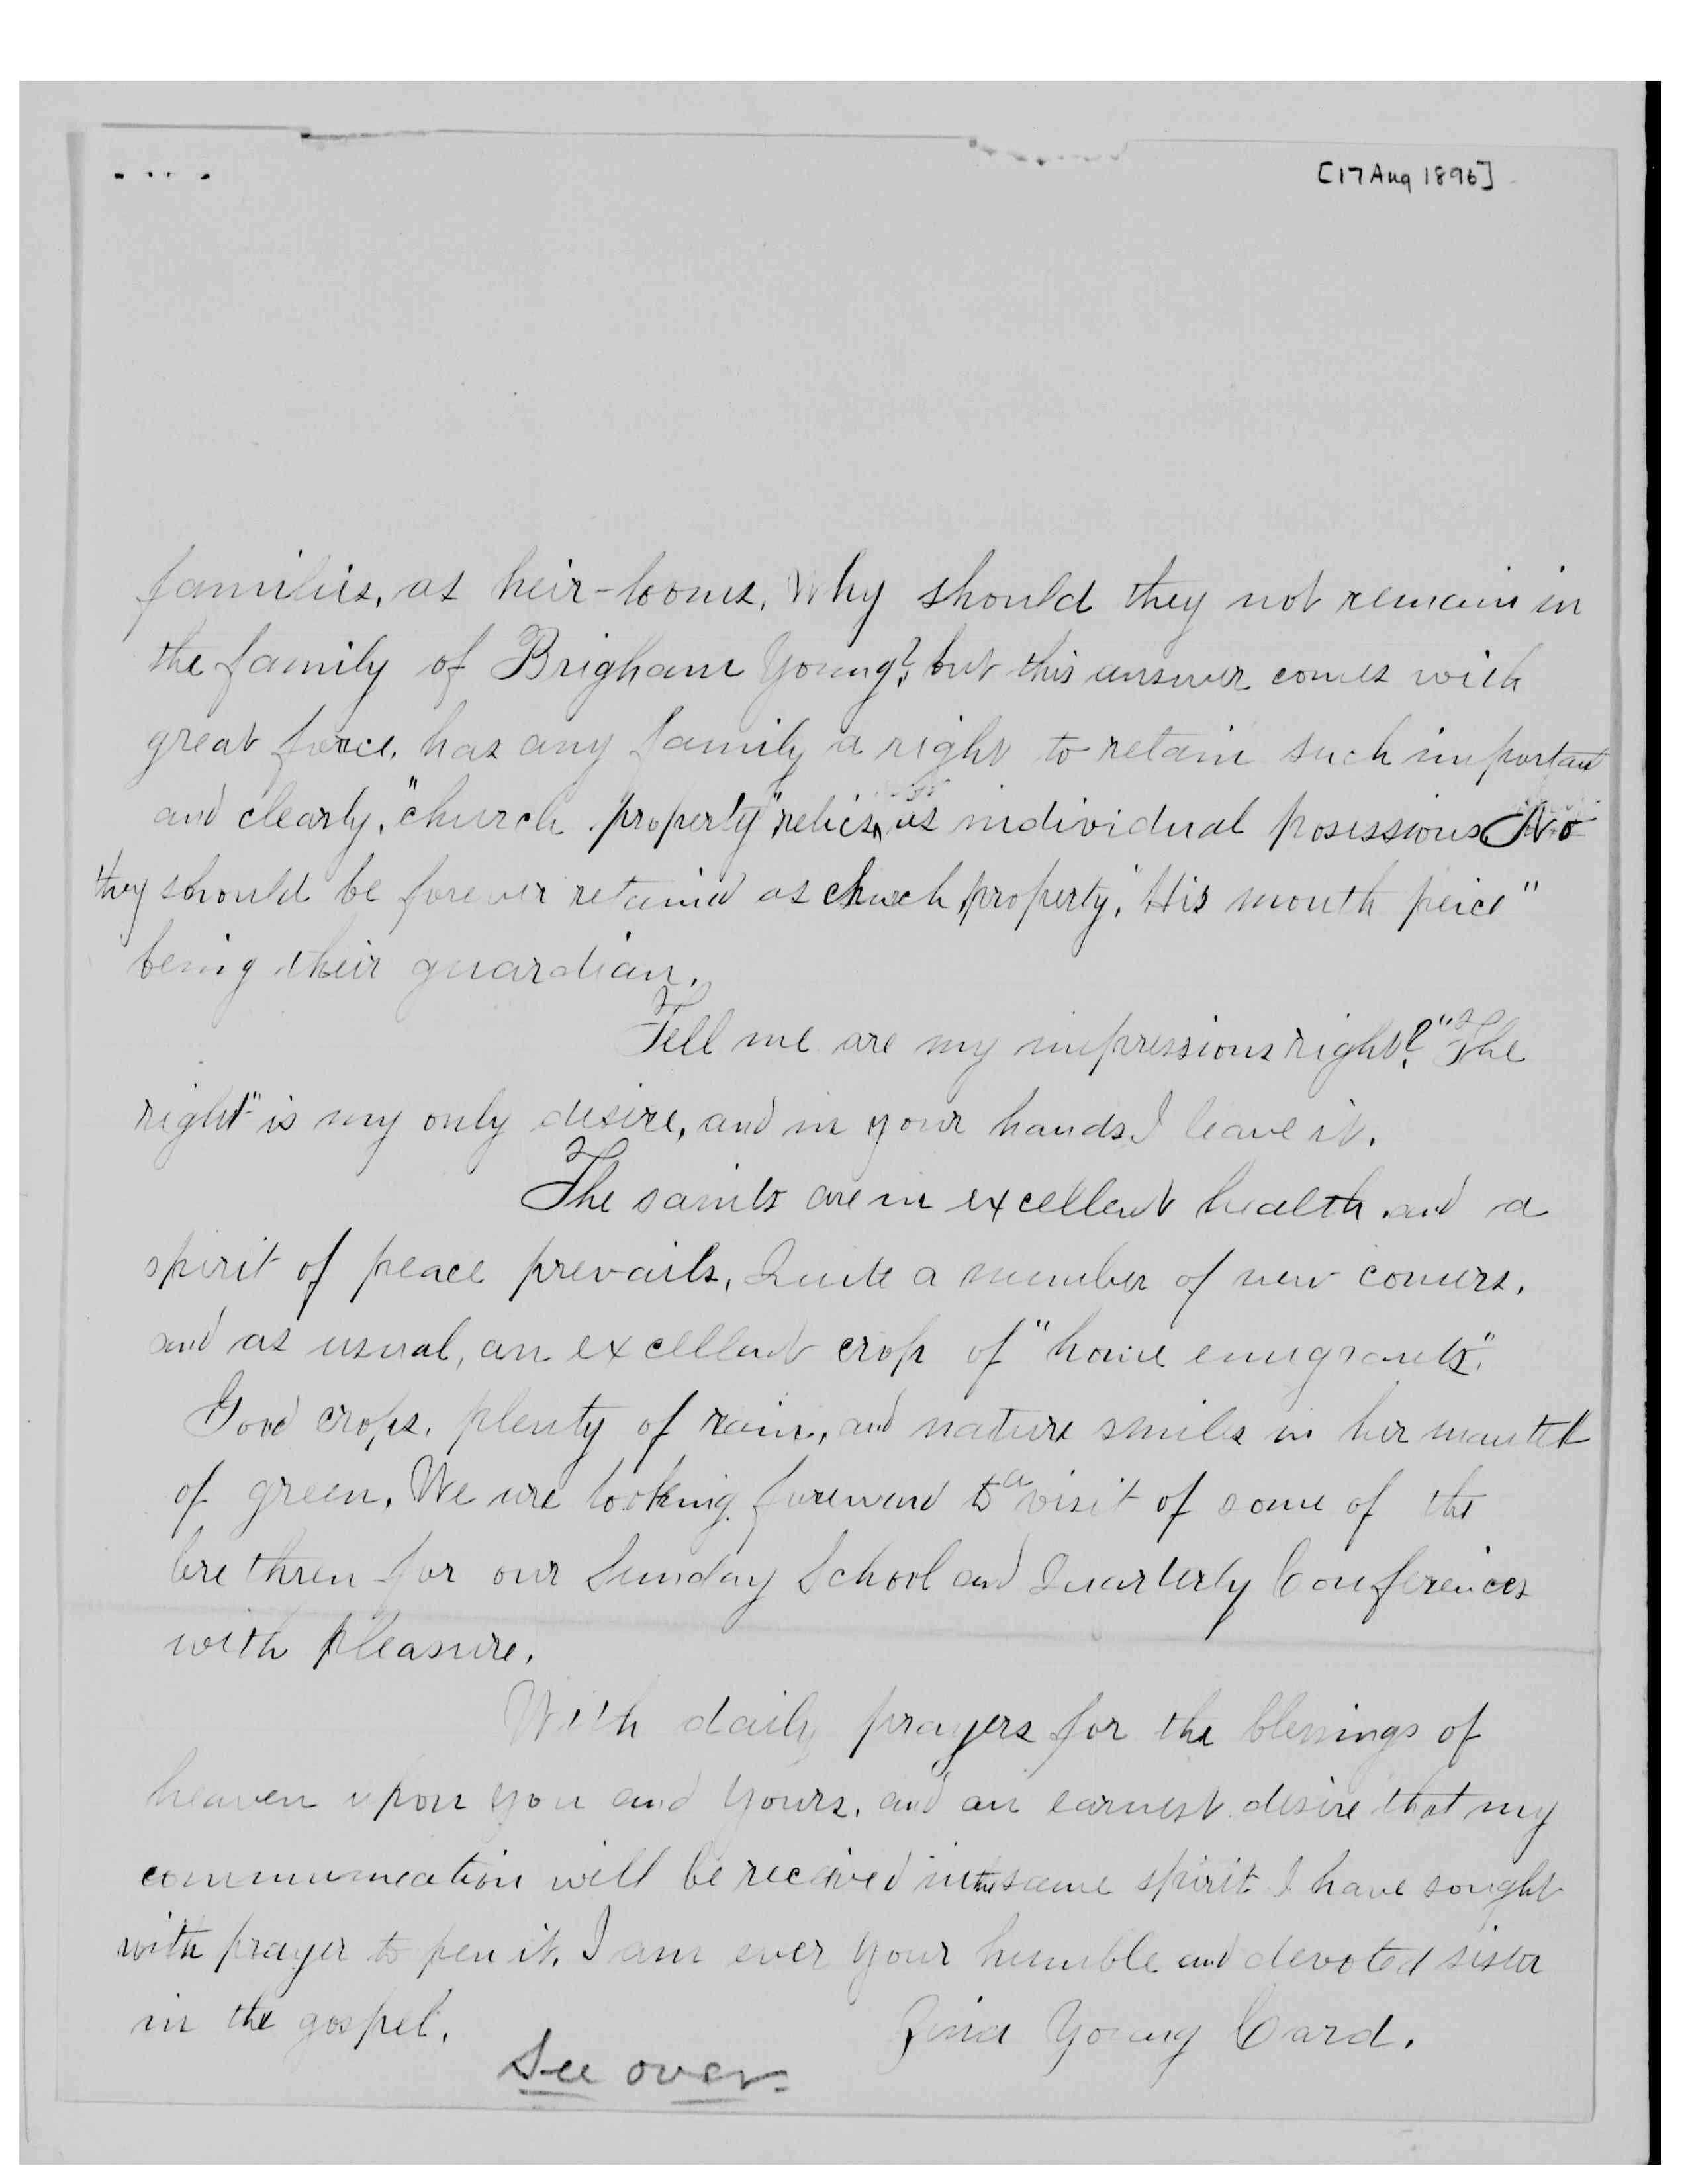 [17 Aug 1896]
families, as heir-looms. Why should they not remain in
the family of Brigham Young?, but this answer comes with
great force, has any family a right to retain such important
and clearly, "church property" relics, as individual posessions No
they should be forever retained as church property, "His mouth peice"
being their guardian.
Tell me are my impressions right? "The
right" is my only desire, and in your hands I leave it.
The saints are in excellent health and a
spirit of peace prevails, Quite a number of new comers,
and as usual, an excellent crop of "home emigrants".
Good crops, plenty of rain, and nature smiles in her mantel
of green. We are looking foreward to a visit of some of the
brethren for our Sunday School and Quarterly Conferences
with pleasure.
With daily prayers for the blessings of
heaven upon you and yours, and an earnest desire that my
communication will be received in the same spirit I have sought
with prayer to pen it. I am ever your humble and devoted sister
in the gospel. Zina Young Card.
See over